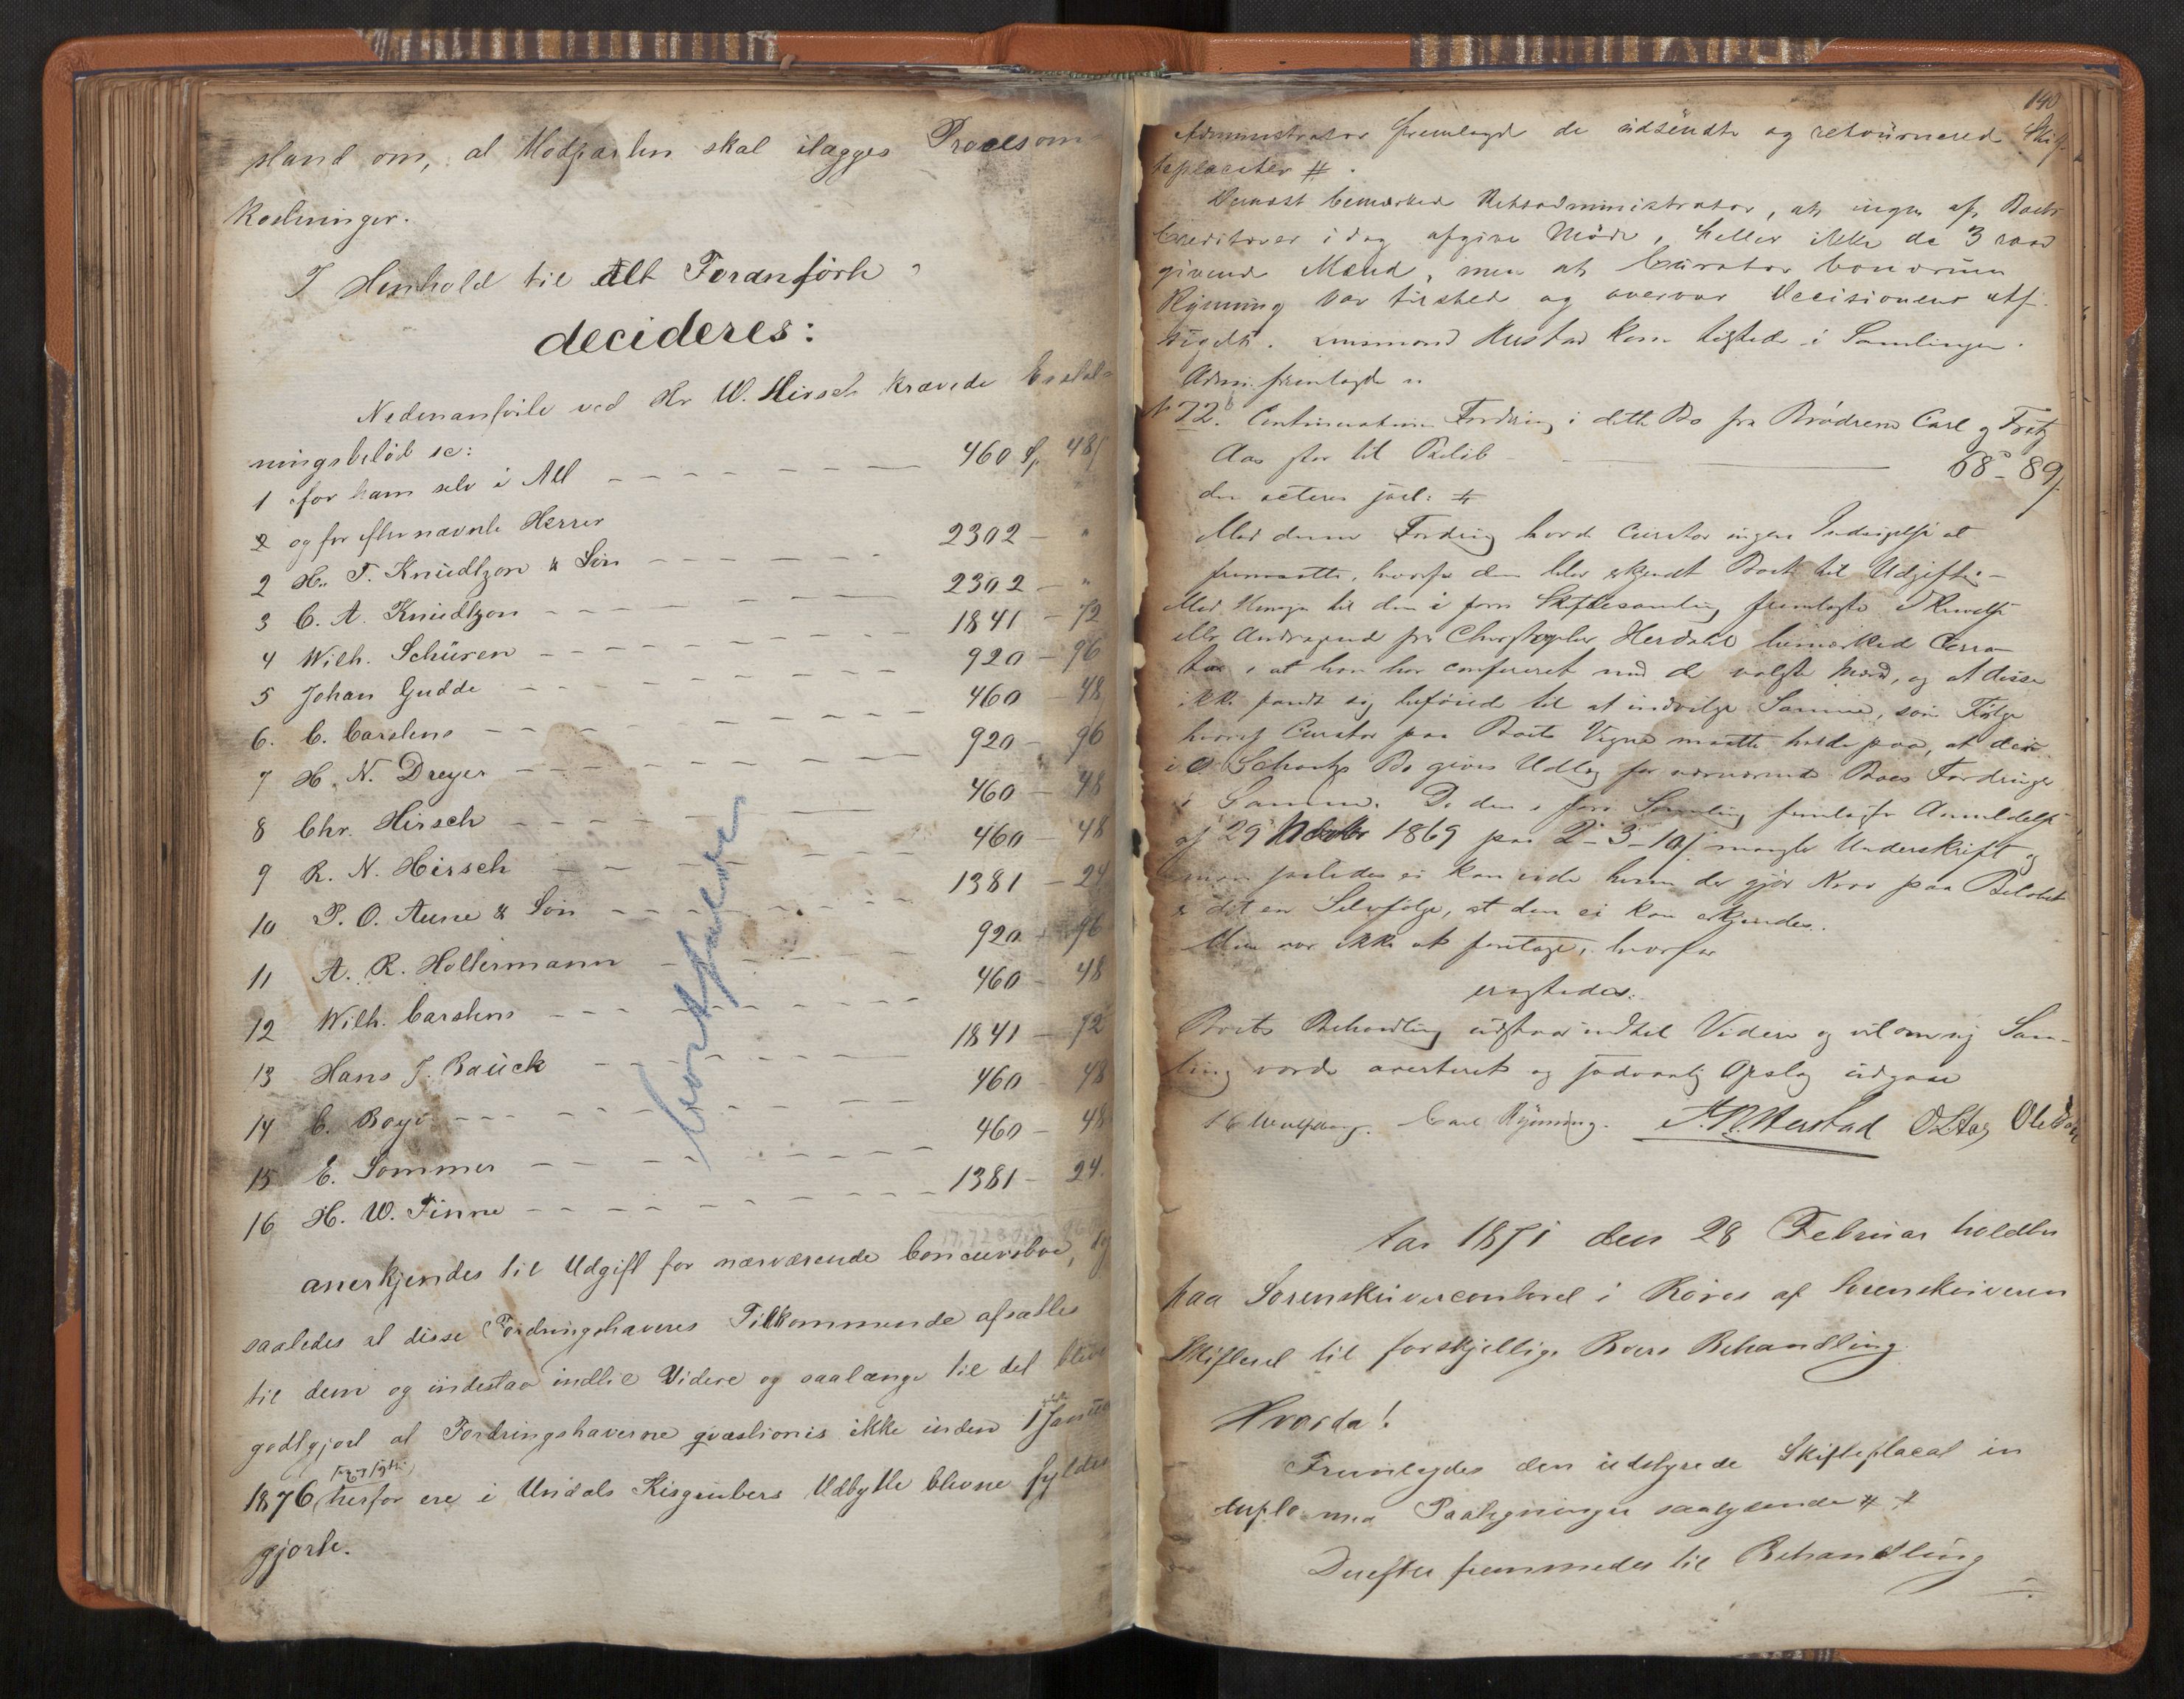 stand om, at Modparten skal ilægges Procesom
kostninger.
I Henhold til Alt Foranførte
decideres:
Nedenanførte ved Hr W. Hirsch krævede
ningsbeløb sc:
1 for ham selv i Alt 460 Sp 48 s
2 og for efternævnte Herrer
2 H. T. Knudtzon & Søn 2302 - "
3 C. A. Knudtzon 2302 - "
4 Wilh. Schüren 1841 - 72
5 Johan Gudde 920 - 96
6. C. Carstens 460 - 48
7 H. N. Dreyer 920 - 96
8 Chr. Hirsch 460 - 48
9 R. N. Hirsch 460 - 48
10 P. O. Aune & Søn 1381 - 24
11 A. R. Holtermann 920 - 96
12 Wilh. Carstens 460 - 48
13 Hans J. Bauck 1841 - 72
14 C. Boye 460 - 48
15 E. Sommer 460 - 48
16 H. W. Finne 1381 - 24.
anerkjendes til Udgift for nærværende Concursbo, og
saaledes at disse Fordringshaveres Tilkommende afsættes
til dem og indestaar indtil Videre og saalænge til det bliver
godtgjort at Fordringshaverne qvæstionis ikke inden 1 Januar
1876 herfor ere i Undals Kisgrubers Udbytte blevne fyldest
gjorte.
140
Administrator fremlagde de udsendte og retournerede Skif-
teplacater #.
Dernæst bemærkede Retsadministrator, at ingen af Boets
Creditorer i dag afgive Møde, heller ikke de 3 raad
givende Mænd, men at Curator bonorum
Rynning var tilstede og overvar Decisionens af-
sigelse. Lensmand Hustad kom tilstede i Samlingen.
Adm. fremlagde
72. Continuations Fordring i dette Bo fra Brødrene Carl og
Aas stor til Beløb 68 - 89
den acteres saal: #
Mod denne Fordring havde Curator ingen Indsigelse at
fremsætte, hvorfor den blev erkjendt Boet til Udgift.
Med Hensyn til den i forr Skiftesamling fremlagte
eller Andragende fra Christopher Herdahl bemærkede Cura-
tor, at han har confereret med de valgte Mænd, og at disse
ikke fandt sig beføiede til at indvilge Samme, som Følge
hvoraf Curator paa Boets Vegne maatte holde paa, at der
i Schartz Bo gives Udlæg for nærværende Boes Fordringer
i Samme. Da den i forr Samling fremlagte Anmeldelse
af 29 1869 paa 2 - 3 - 10 s mangler Underskrift og
man saaledes ei kan vide hvem der gjør Krav paa Beløbet
er det en Selvfølge, at den ei kan erkjendes.
Mere var ikke at foretage, hvorfor
eragtedes:
Boets Behandling udstaar indtil Videre og vil om ny Sam-
ling vorde averteret og sædvanlig Opslag udgaae
Carl Rynning. Hustad
Aar 1871 den 28 Februar holdtes
paa Sorenskrivercontoret i Røros af Sorenskriveren
Skifteret til forskjellige Boers Behandling.
Hvorda!
Fremlagdes den udstyrede Skifteplacat in
duplo med Paategninger saalydende # #
Derefter fremmedes til Behandling